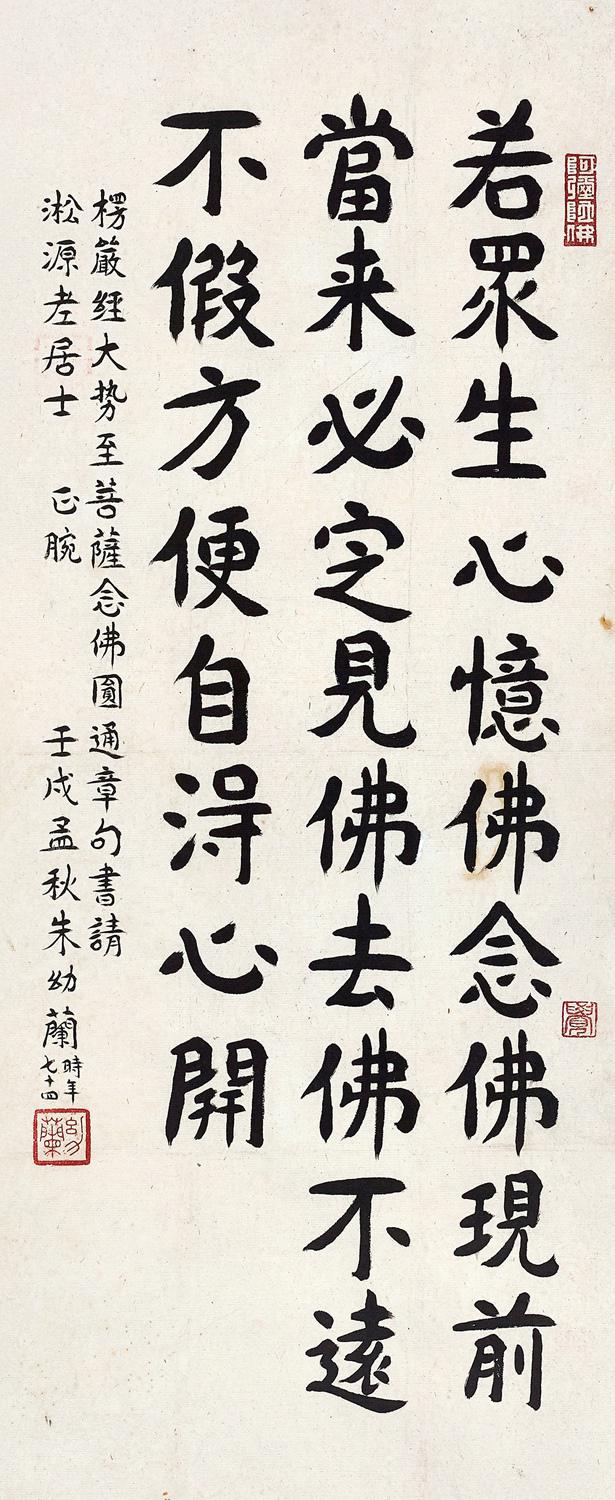 阿彌陀佛
若眾生心憶佛念佛現前
當来必定見佛去佛不遠
不假方便自淂心開
楞嚴經大势至菩薩念佛圓通章句書請
淞源老居士 正腕 壬戌孟秋朱幼蘭時年七十四
幼蘭